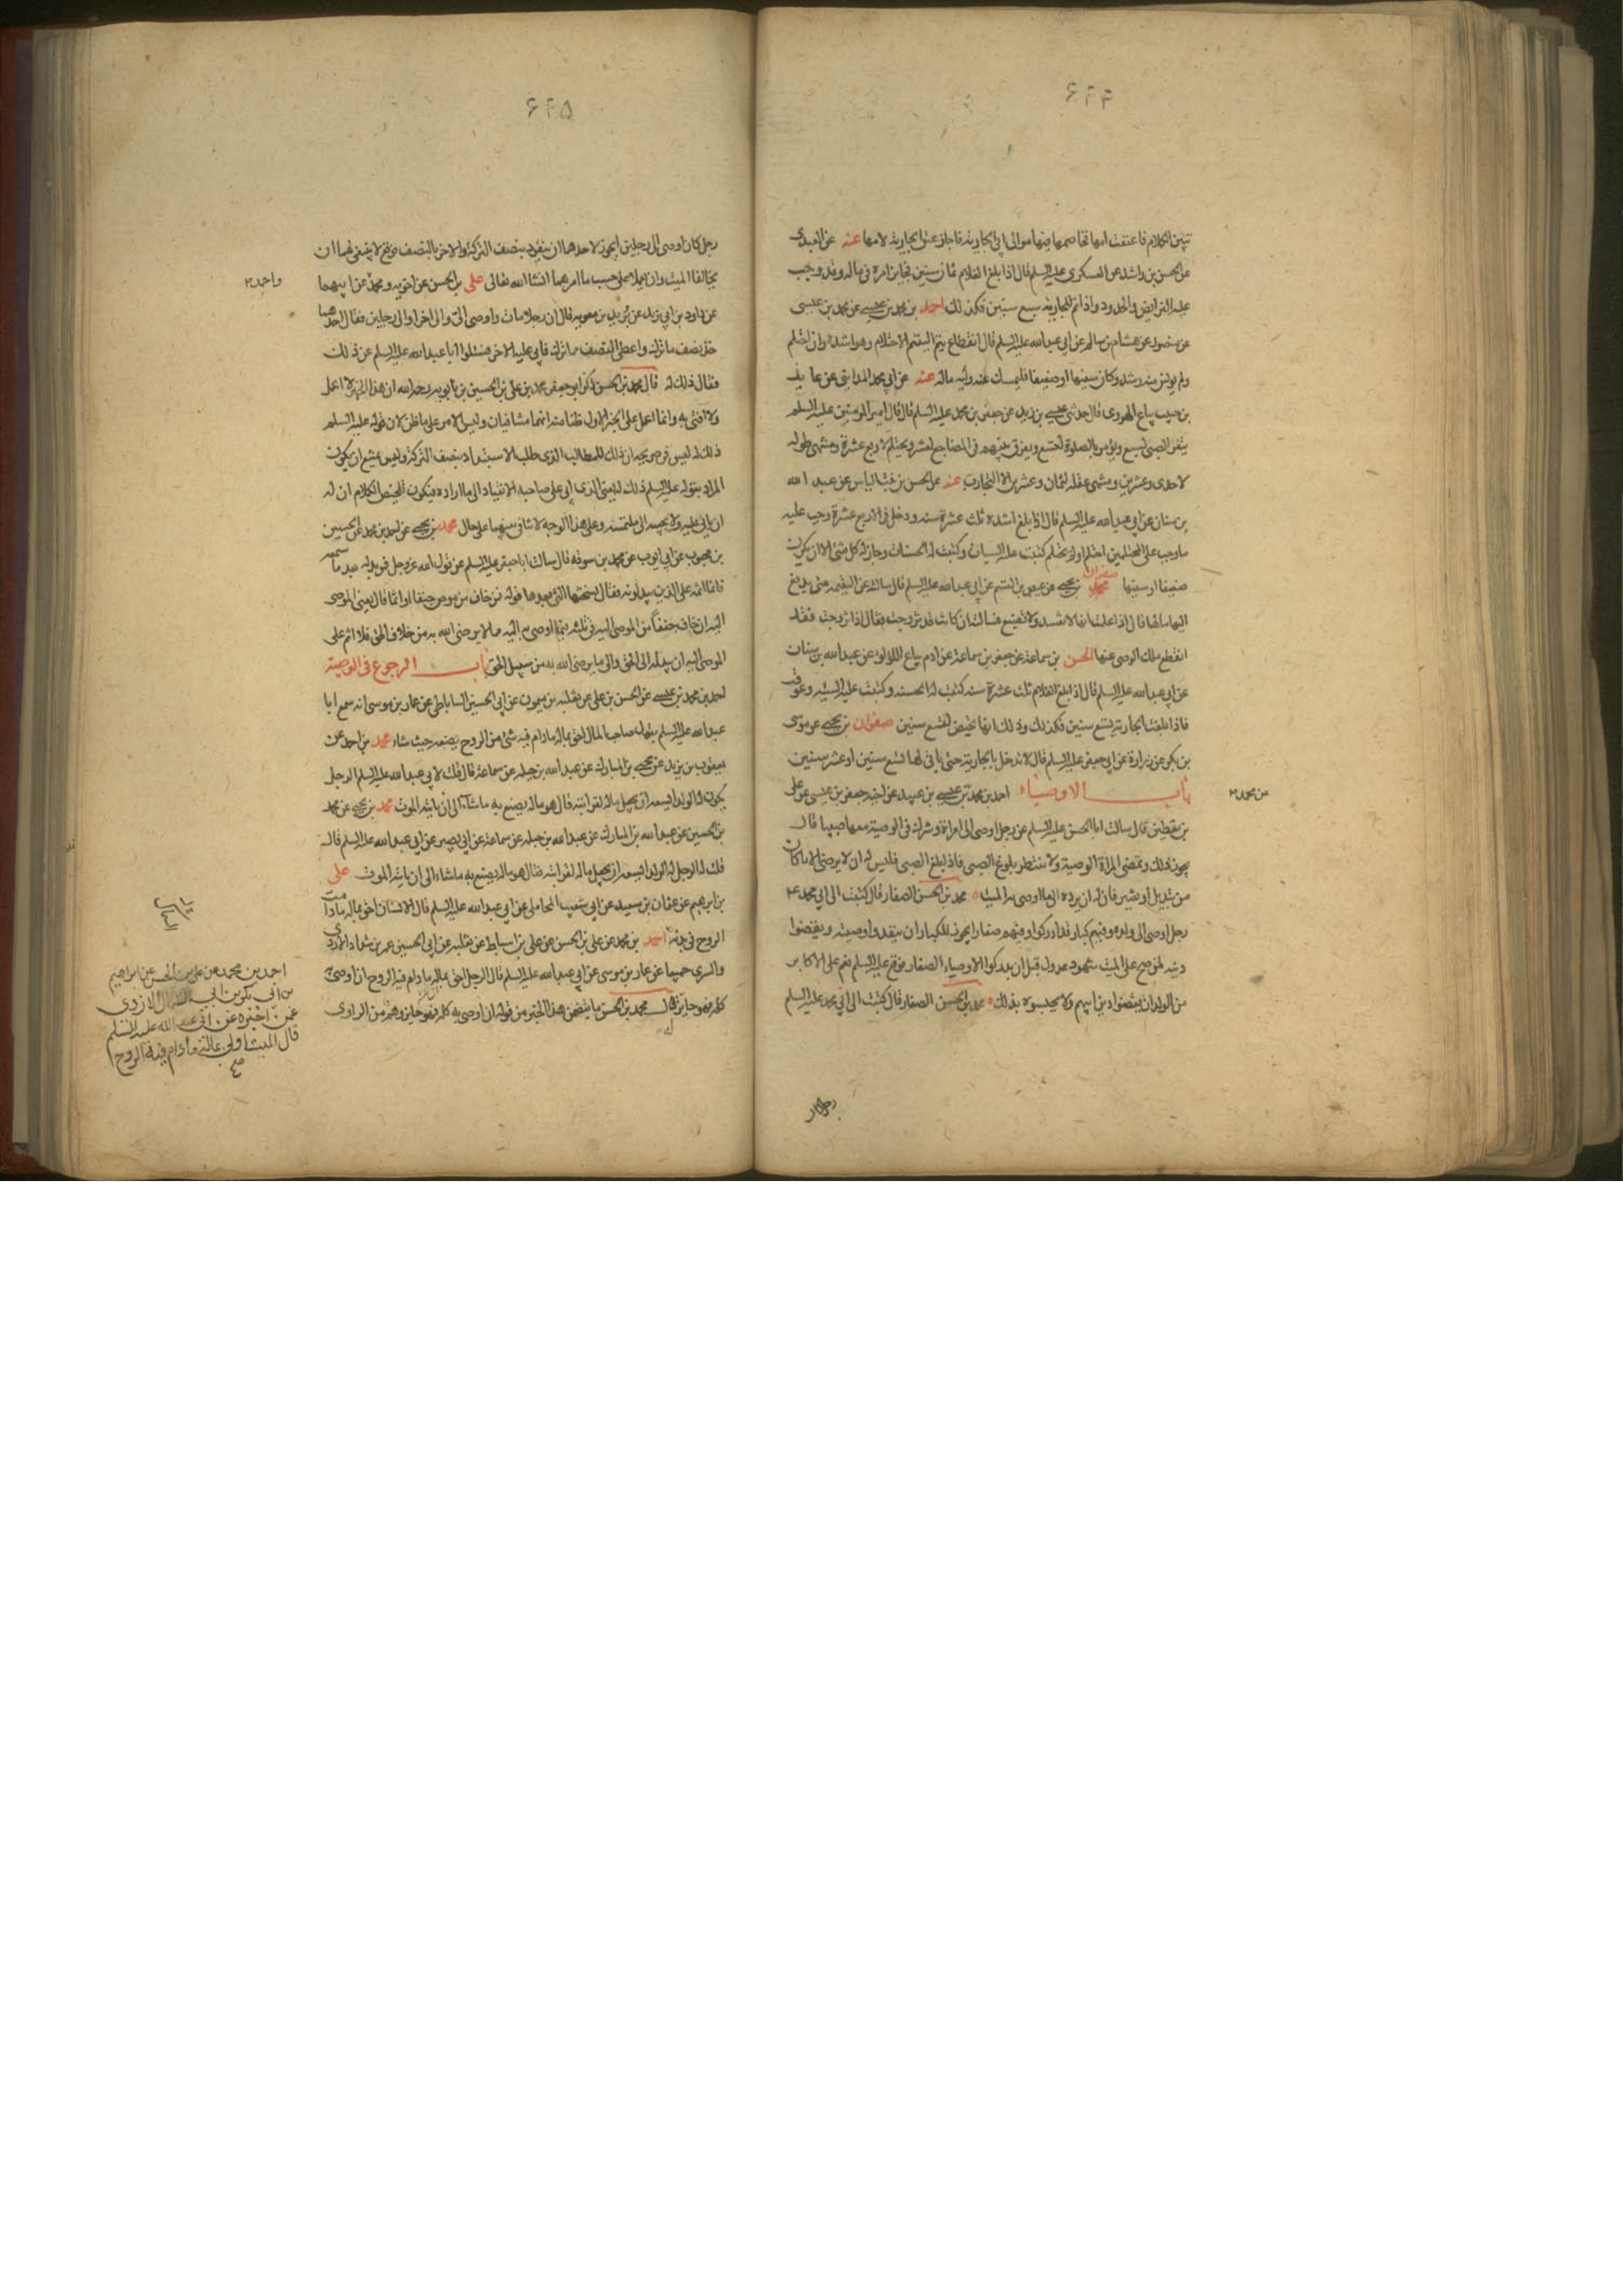 ۶۴۴
تبين الكلام فاعتقت امها فخاصمها فيها موالى ابى الجارية فاجاز عتق الجارية لامها عنه عن العبدى
عن الحسن بن راشد عن العسكرى عليه السلم قال اذا بلغ الغلام ثمان سنين فجايز امره فى ماله وقد وجب
عليه الفرايض والحدود واذا تم للجارية سبع سنين فكذلك احمد بن محمد بن عيسى عن محمد بن عيسى
عن منصور عن هشام بن سالم عن ابى عبدالله عليه السلم قال انقطاع يتم اليتيم الاحتلام وهو اشده وان احتلم
ولم يونس منه رشد وكان سفيها او ضعيفا فليمسك عنه وليه ماله عنه عن ابى محمد المداينى عن عايذ
بن حبيب بياع الهروى قال حدثنى عيسى بن زيد عن جعفر بن محمد عليه السلم قال قال امير المومنين عليه السلم
يثغر الصبى لسبع ويؤمر بالصلوة لتسع ويفرق بينهم فى المضاجع لعشر ويحتلم لاربع عشرة ومنتهى طوله
لاحدى وعشرين ومنتهى عقله لثمان وعشرين الا التجارب عنه عن الحسن بن بنت الياس عن عبد الله
بن سنان عن ابى عبدالله عليه السلم قال اذا بلغ اشده ثلث عشرة سنه ودخل فى الاربع عشرة وجب عليه
ما وجب على المحتلمين احتلم او لم يحتلم كتبت عليه السيئات وكتبت له الحسنات وجاز له كل شئ الا ان يكون
ضعيفا او سفيها صفوان بن يحيى عن عيص بن القسم عن ابى عبدالله عليه السلم قال سالته عن اليتيمه متى يدفع
اليها مالها قال اذا علمت انها لا تفسد ولا تضيع فسالته ان كانت قد تزوجت فقال اذا تزوجت فقد
انقطع ملك الوصى عنها الحسن بن سماعة عن جعفر بن سماعة عن ادم بياع اللؤلؤ عن عبدالله بن سنان
عن ابى عبدالله عليه السلم قال اذا بلغ الغلام ثلث عشرة سنه كتبت له الحسنه وكتبت عليه السيئه وعوقب
فاذا بلغت الجارية تسع سنين فكذلك وذلك انها تحيض لتسع سنين صفوان بن يحيى عن موسى
بن بكر عن زرارة عن ابى جعفر عليه السلم قال لا تدخل بالجارية حتى ياتى لها تسع سنين او عشر سنين
باب الاوصياء احمد بن محمد بن عيسى بن عبيد عن اخيه جعفر بن عيسى عن على
عن محمد
بن يقطين قال سالت ابا الحسن عليه السلم عن رجل اوصى الى امراة وشرك فى الوصية معها صبيا قال
يجوز ذلك وتمضى المراة الوصية ولا تنتظر بلوغ الصبى فاذا بلغ الصبى فليس له ان لا يرضى الا ما كان
من تبديل او تغيير فان له ان يرده الى ما اوصى به الميت محمد بن الحسن الصفار قال كتبت الى ابى محمد ع
رجل اوصى الى ولده وفيهم كبار قد ادركوا وفيهم صغار ايجوز للكبار ان ينفذوا وصيته ويقضوا
دينه لمن صح على الميت بشهود عدول قبل ان يدركوا الاوصياء الصغار فوقع عليه السلم نعم على الاكابر
من الولدان يقضوا دين ابيهم ولا يحبسوه بذلك محمد بن الحسن الصفار قال كتبت الى ابى محمد عليه السلم
رجل كان
۶۴۵
رجل كان اوصى الى رجلين ايجوز لاحدهما ان ينفرد بنصف التركة والاخر بالنصف فوقع لا ينبغى لهما ان
يخالفا الميت وان يعملا على حسب ما امرهما انشاالله تعالى على بن الحسن عن اخويه محمد واحمد عن ابيهما
واحمد
عن داود بن ابى يزيد عن بريد بن معويه قال ان رجلا مات واوصى الى والى اخر او الى رجلين فقال احدهما
خذ نصف ما ترك واعطنى النصف مما ترك فابى عليه الاخر فسئلوا ابا عبدالله عليه السلم عن ذلك
فقال ذلك له قال محمد بن الحسن ذكر ابو جعفر محمد بن على بن الحسين بن بابويه رحمه الله ان هذا الخبر لا اعمل
ولا افتى به وانما اعمل على الخبر الاول ظنا منه انهما متنافيان وليس الامر على ما ظن لان قوله عليه السلم
ذلك له ليس فى صريحه ان ذلك للمطالب الذى طلب الاستبداد بنصف التركة وليس يمتنع ان يكون
المراد بقوله عليه السلم ذلك له يعنى الذى ابى على صاحبه الانقياد الى ما اراده فيكون تلخيص الكلام ان له
ان يابى عليه ولا يجيبه الى ملتمسه وعلى هذا الوجه لا تنافى بينهما على حال محمد بن يحيى عن احمد بن محمد عن الحسين
بن محبوب عن ابى ايوب عن محمد بن سوقة قال سالت ابا جعفر عليه السلم عن قول الله عز وجل فمن بدله بعد ما سمعه
فانما اثمه على الذين يبدلونه فقال نسختها التى بعدها قوله فمن خاف من موص جنفا او اثما قال يعنى الموصى
اليه ان خاف جنفاً من الموصى اليه فى ثلثه فيما اوصى به اليه مما لا يرضى الله به من خلاف الحق فلا اثم على
الموصى اليه ان يبدله الى الحق والى ما يرضى الله به من سبيل الحق باب الرجوع فى الوصية
احمد بن محمد بن عيسى عن الحسن بن على عن ثعلبه بن ميمون عن ابى الحسين الساباطى عن عمار بن موسى انه سمع ابا
عبدالله عليه السلم يقول صاحب المال احق بماله مادام فيه شئ من الروح يضعه حيث شاء محمد بن احمد عن
يعقوب بن يزيد عن يحيى بن المبارك عن عبدالله بن جبله عن سماعة قال قلت لابى عبدالله عليه السلم الرجل
يكون له الولد ايسعه ان يجعل ماله لقرابته قال هو ماله يصنع به ما شاء الى ان ياتيه الموت محمد بن يحيى عن محمد
بن الحسين عن عبدالله بن المبارك عن عبدالله بن جبله عن سماعة عن ابى بصير عن ابى عبدالله عليه السلم قال
قلت له الرجل له الولد ايسعه ان يجعل ماله لقرابته فقال هو ماله يصنع به ما شاء الى ان ياتيه الموت على
بن ابراهيم عن عثمان بن سعيد عن ابى شعيب المحاملى عن ابى عبدالله عليه السلم قال الانسان احق بماله مادامت
الروح فى بدنه احمد بن محمد عن على بن الحسن عن على بن اسباط عن ثعلبه عن ابى الحسين عمر بن شداد الازدى
والسرى جميعا عن عمار بن موسى عن ابى عبدالله عليه السلم قال الرجل احق بماله مادام فيه الروح ان اوصى به
كله فهو جايز له قال محمد بن الحسن ما يتضمن هذا الخبر من قوله ان اوصى به كله فهو جايز وهم من الراوى
احمد بن محمد عن على بن الحسن عن ابراهيم
بن ابى بكر بن ابى السمال الازدى
عمن اخبره عن ابى عبد الله عليه السلم
قال الميت اولى بماله مادام فيه الروح
صح